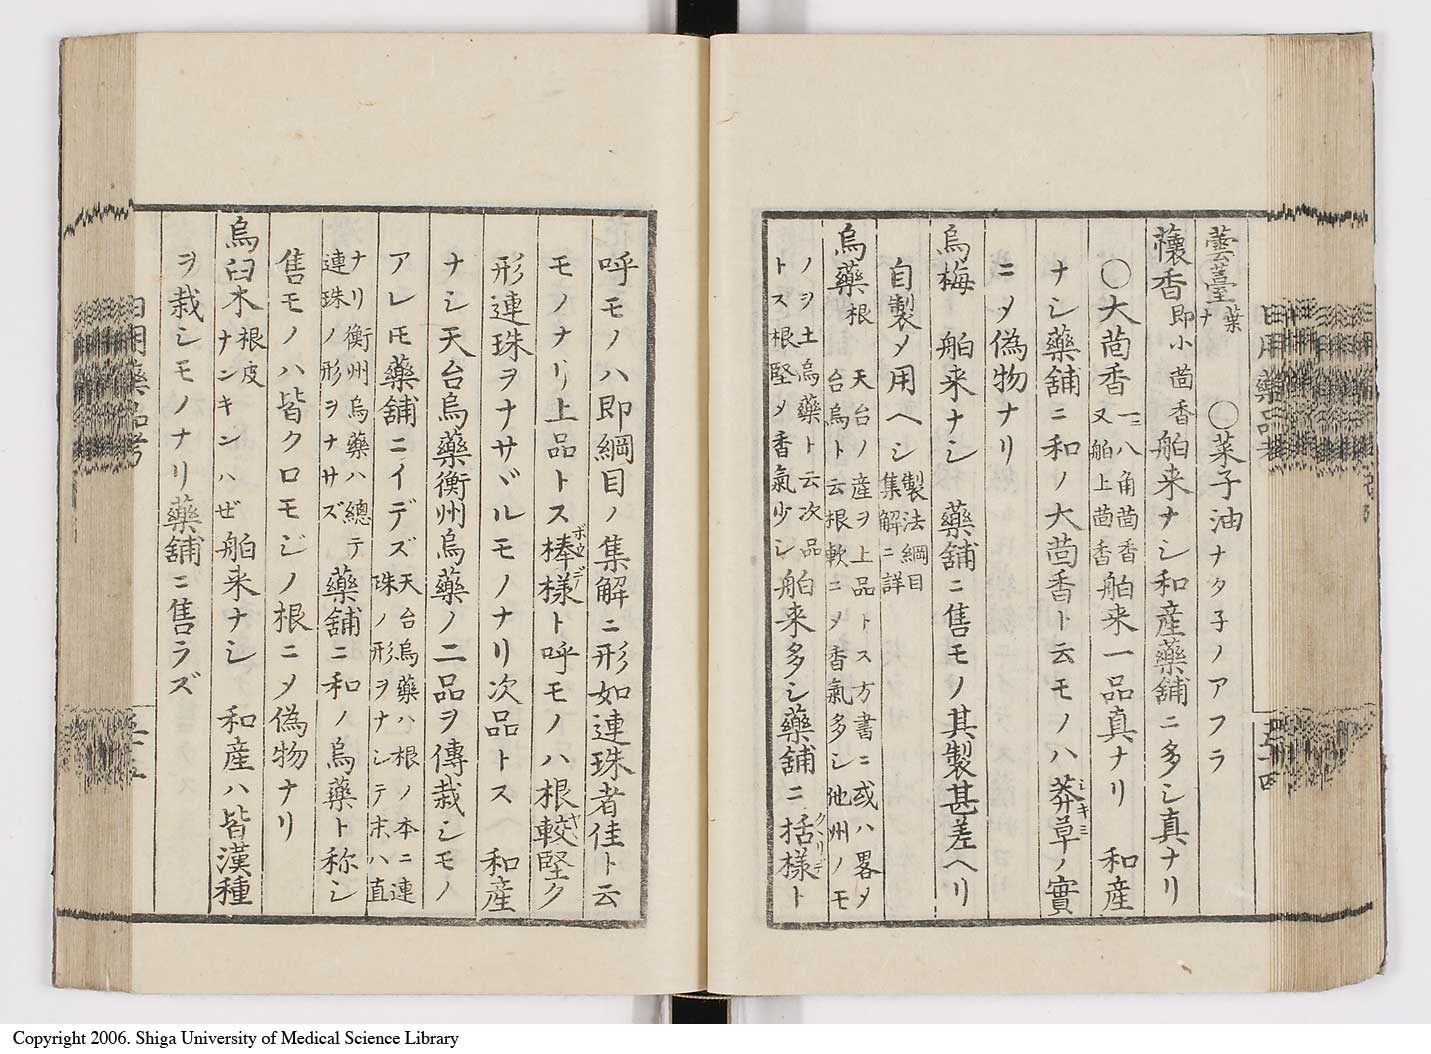 蕓薹葉ナ 〇菜子油ナタ子ノアフラ
懷香即小茴香舶来ナシ和産藥舖ニ多シ真ナリ
〇大茴香一ニ八角茴香又舶上茴香舶来一品真ナリ 和産
ナシ藥舖ニ和ノ大茴香ト云モノハ莽草シキミノ實
ニメ偽物ナリ
烏梅 舶来ナシ 藥舖ニ售モノ其製甚差ヘリ
自製メ用ヘシ製法綱目集解ニ詳
烏藥根 天台ノ産ヲ上品トス方書ニ或ハ畧メ台烏ト云根軟ニメ香氣多シ他州ノモ
ノヲ土烏藥ト云次品トス根堅メ香氣少シ舶来多シ藥舖ニ括様クヽリデト
呼モノハ即綱目ノ集解ニ形如連珠者佳ト云
モノナリ上品トス棒様ボウデト呼モノハ根較ヤヽ堅ク
形連珠ヲナサヾルモノナリ次品トス 和産
ナシ天台烏藥衡州烏藥ノ二品ヲ傳栽シモノ
アレ𪜈藥舖ニイデズ天台烏藥ハ根ノ本ニ連珠ノ形ヲナシテホハ直
ナリ衡州烏藥ハ總テ連珠ノ形ヲナサズ 藥舖ニ和ノ烏藥ト称シ
售モノハ皆クロモジノ根ニメ偽物ナリ
烏臼木根皮ナンキンハぜ 舶来ナシ 和産ハ皆漢種
ヲ栽シモノナリ藥舖ニ售ラズ
日用藥品考
日用藥品考
Copyright 2006. Shiga University of Medical Science Library